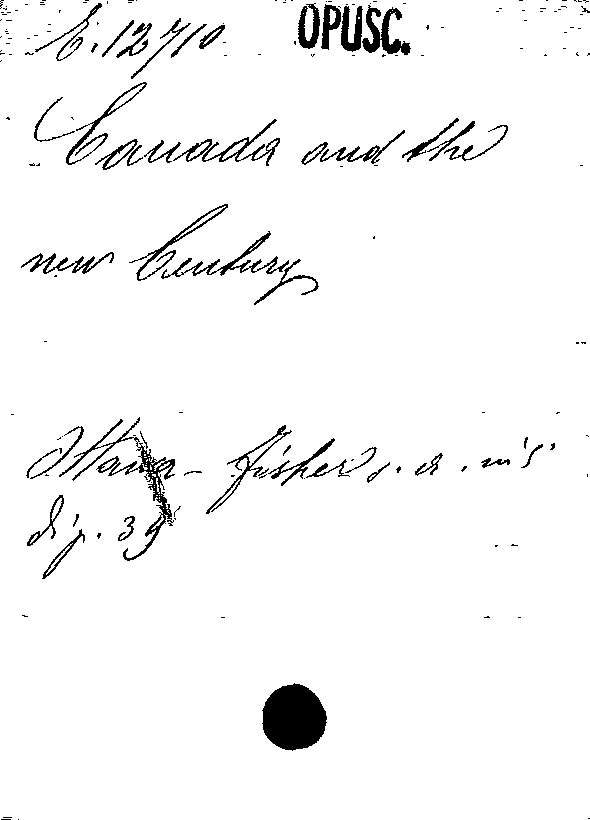 E. 12710 OPUSC.
Canada and the
new Century
Ottawa - Fisher s. a. in 8°
di p. 39